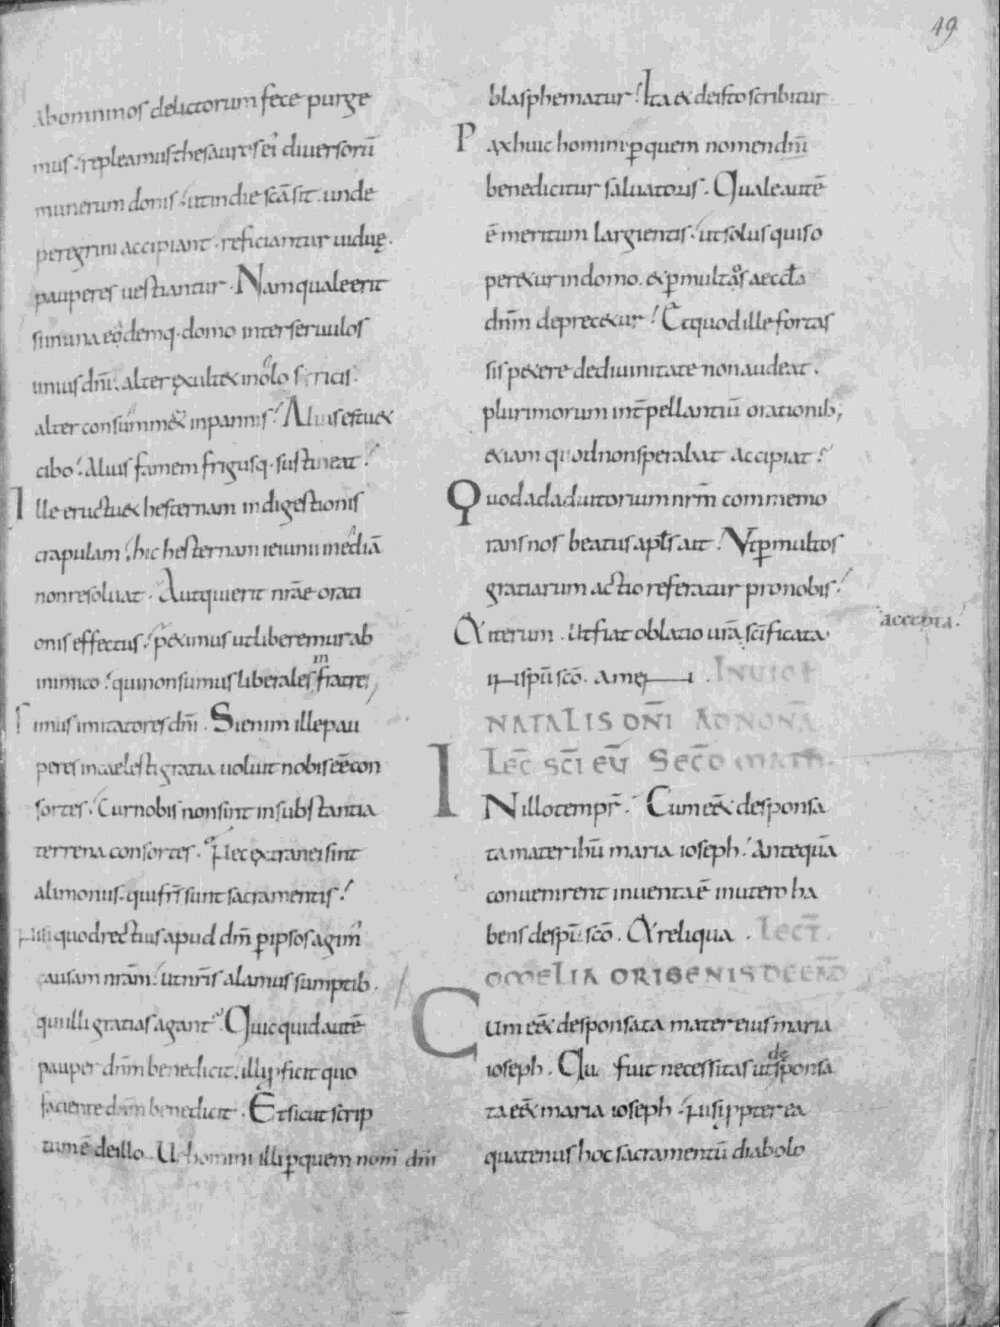 49
abomnimos delictorum fece purge
mus. repleamus thesauros ei diuersorū
munerum donis. ut in die scā sit. unde
peregrini accipiant. reficiantur uiduę.
pauperes uestiantur. Nam quale erit
si in una eodemq. domo inter seruulos
unius dn̄i. alter exultet in olo sericis.
alter consummet& in pannis? Alius estuet
cibo? Alius famem frigusq. sustineat?
Ille eructuet hesternam indigestionis
crapulam? hic hesternam ieiunii mediā
non resoluat. Aut qui erit nrāe orati
onis effectus? peximus ut liberemur ab
inimico? qui non sumus liberales in fratre,
simus imitatores dn̄i. Si enim ille pau
peres in caelesti gratia uoluit nobis eē con
sortes. Cur nobis non sint in substantia
terrena consortes. Nec extranei sint
alimoniis. qui fr̄s sunt sacramentis?
Nisi quod rectius apud dn̄m p ipsos agim'
causam nrām. ut nr̄is alamus sumptib.
qui illi gratias agant. Quicquid autē
pauper dn̄m benedicit. illi pficit quo
faciente dn̄m benedicit. Et sicut scrip
tum ē de illo. Ue homini illi p quem nom̄ dn̄i
blasphematur! Ita & de isto scribitur.
Pax huic homini p quem nomen dn̄i
benedicitur saluatoris. Quale autē
ē meritum largientis. ut solus qui so
petetur in domo. & p multos aeccła
dn̄m deprecetur! Et quod ille fortas
sis petere de diuinitate non audeat.
plurimorum int̄pellantiū orationib;
etiam quod non sperabat accipiat!
Quod ad adiutorium nrm̄ commemo
rans nos beatus apłs ait! Ut p multos
gratiarum actio referatur pro nobis!
& iterum. Ut fiat oblatio urā accepta! sc̄ificata
in sp̄u sc̄o. amen. In uigł
NATALIS DN̄I AD NONĀ
Lec̄ sc̄i eū Sec̄o math.
IN illo tempr̄. Cum ee& desponsa
ta mater ihū maria ioseph. Antequā
conuenirent inuenta ē in utero ha
bens de sp̄u sc̄o. & reliqua. Lect̄.
OMELIA ORIGENIS DE EAD̄
Cum ee& desponsata mater eius maria
ioseph. Qu fuit necessitas ut desponsa
ta ee& maria ioseph. Nisi ppterea
quatenus hoc sacramentū diabolo